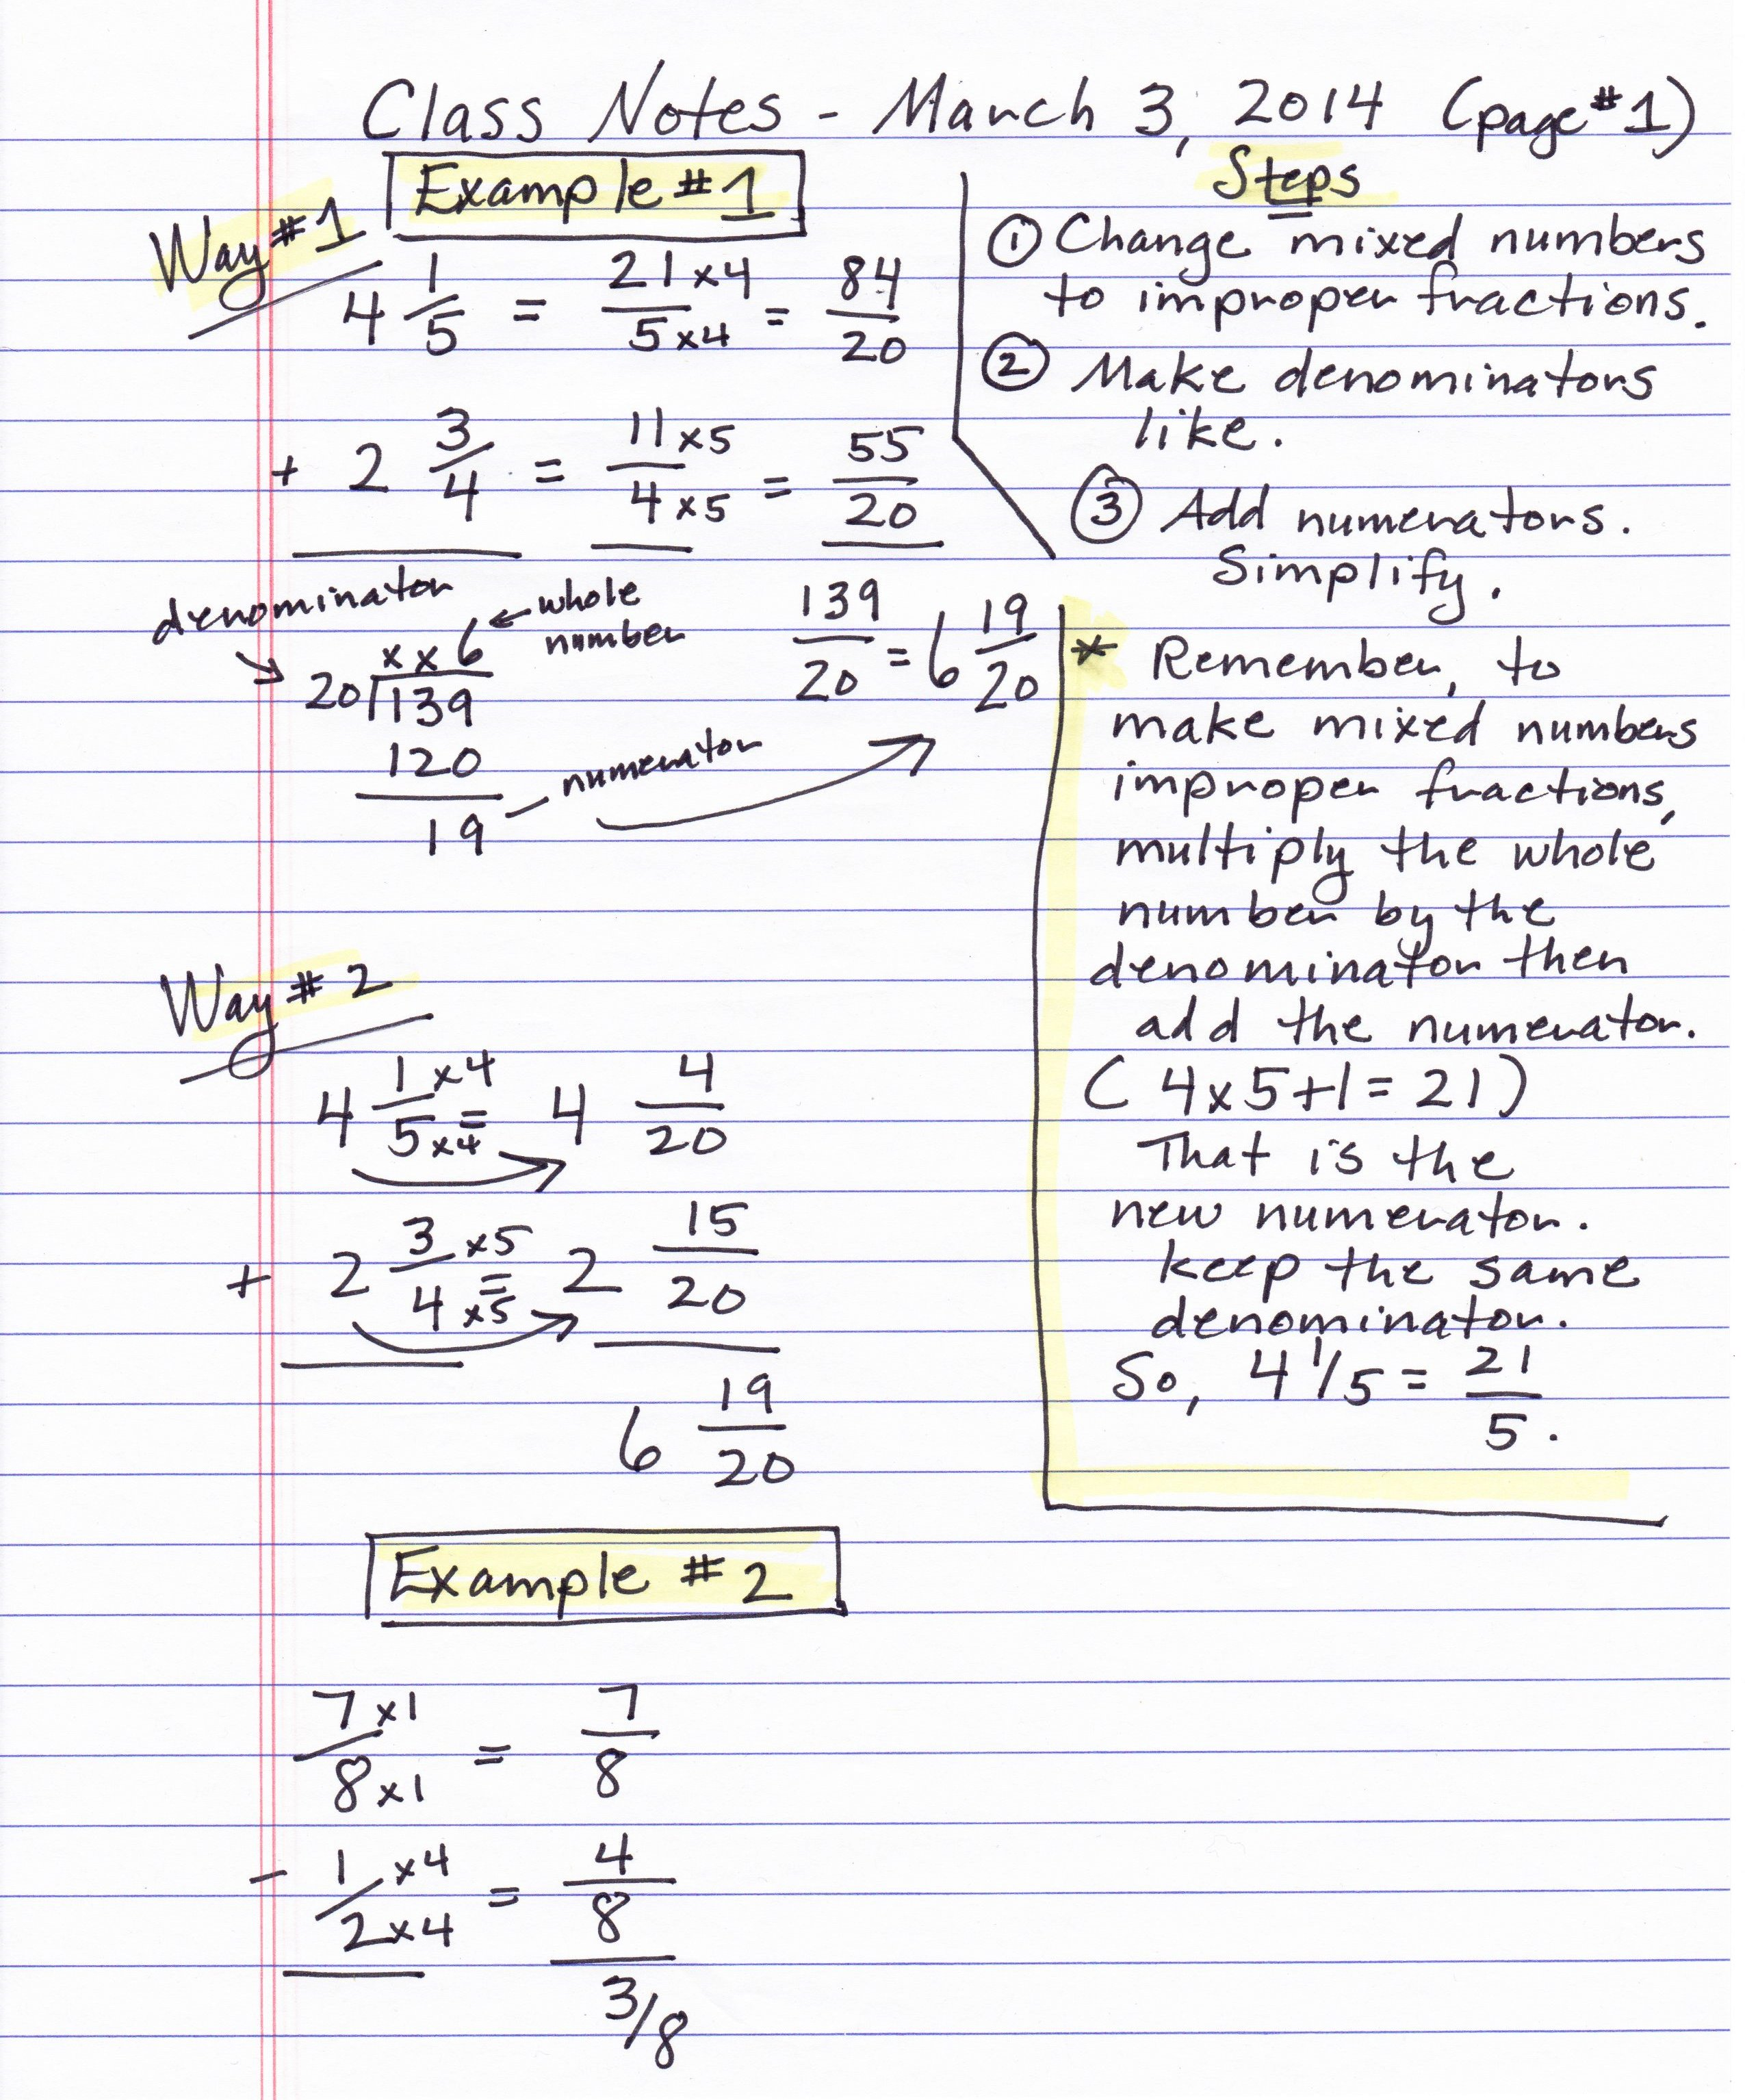 Class Notes - March 3, 2014 (page #1)
Example #1
Way #1
4 1/5 = 21 x4 / 5 x4 = 84/20
+ 2 3/4 = 11 x5 / 4 x5 = 55/20
139/20 = 6 19/20
denominator
← whole number
x x 6
20 139
120
19
numerator
Steps
① Change mixed numbers
to improper fractions.
② Make denominators
like.
③ Add numerators.
Simplify.
* Remember, to
make mixed numbers
improper fractions,
multiply the whole
number by the
denominator then
add the numerator.
(4x5+1=21)
That is the
new numerator.
Keep the same
denominator.
So, 4 1/5 = 21/5.
Way #2
4 1 x4 / 5 x4 = 4 4/20
+ 2 3 x5 / 4 x5 = 2 15/20
6 19/20
Example #2
7 x1 / 8 x1 = 7/8
- 1 x4 / 2 x4 = 4/8
3/8